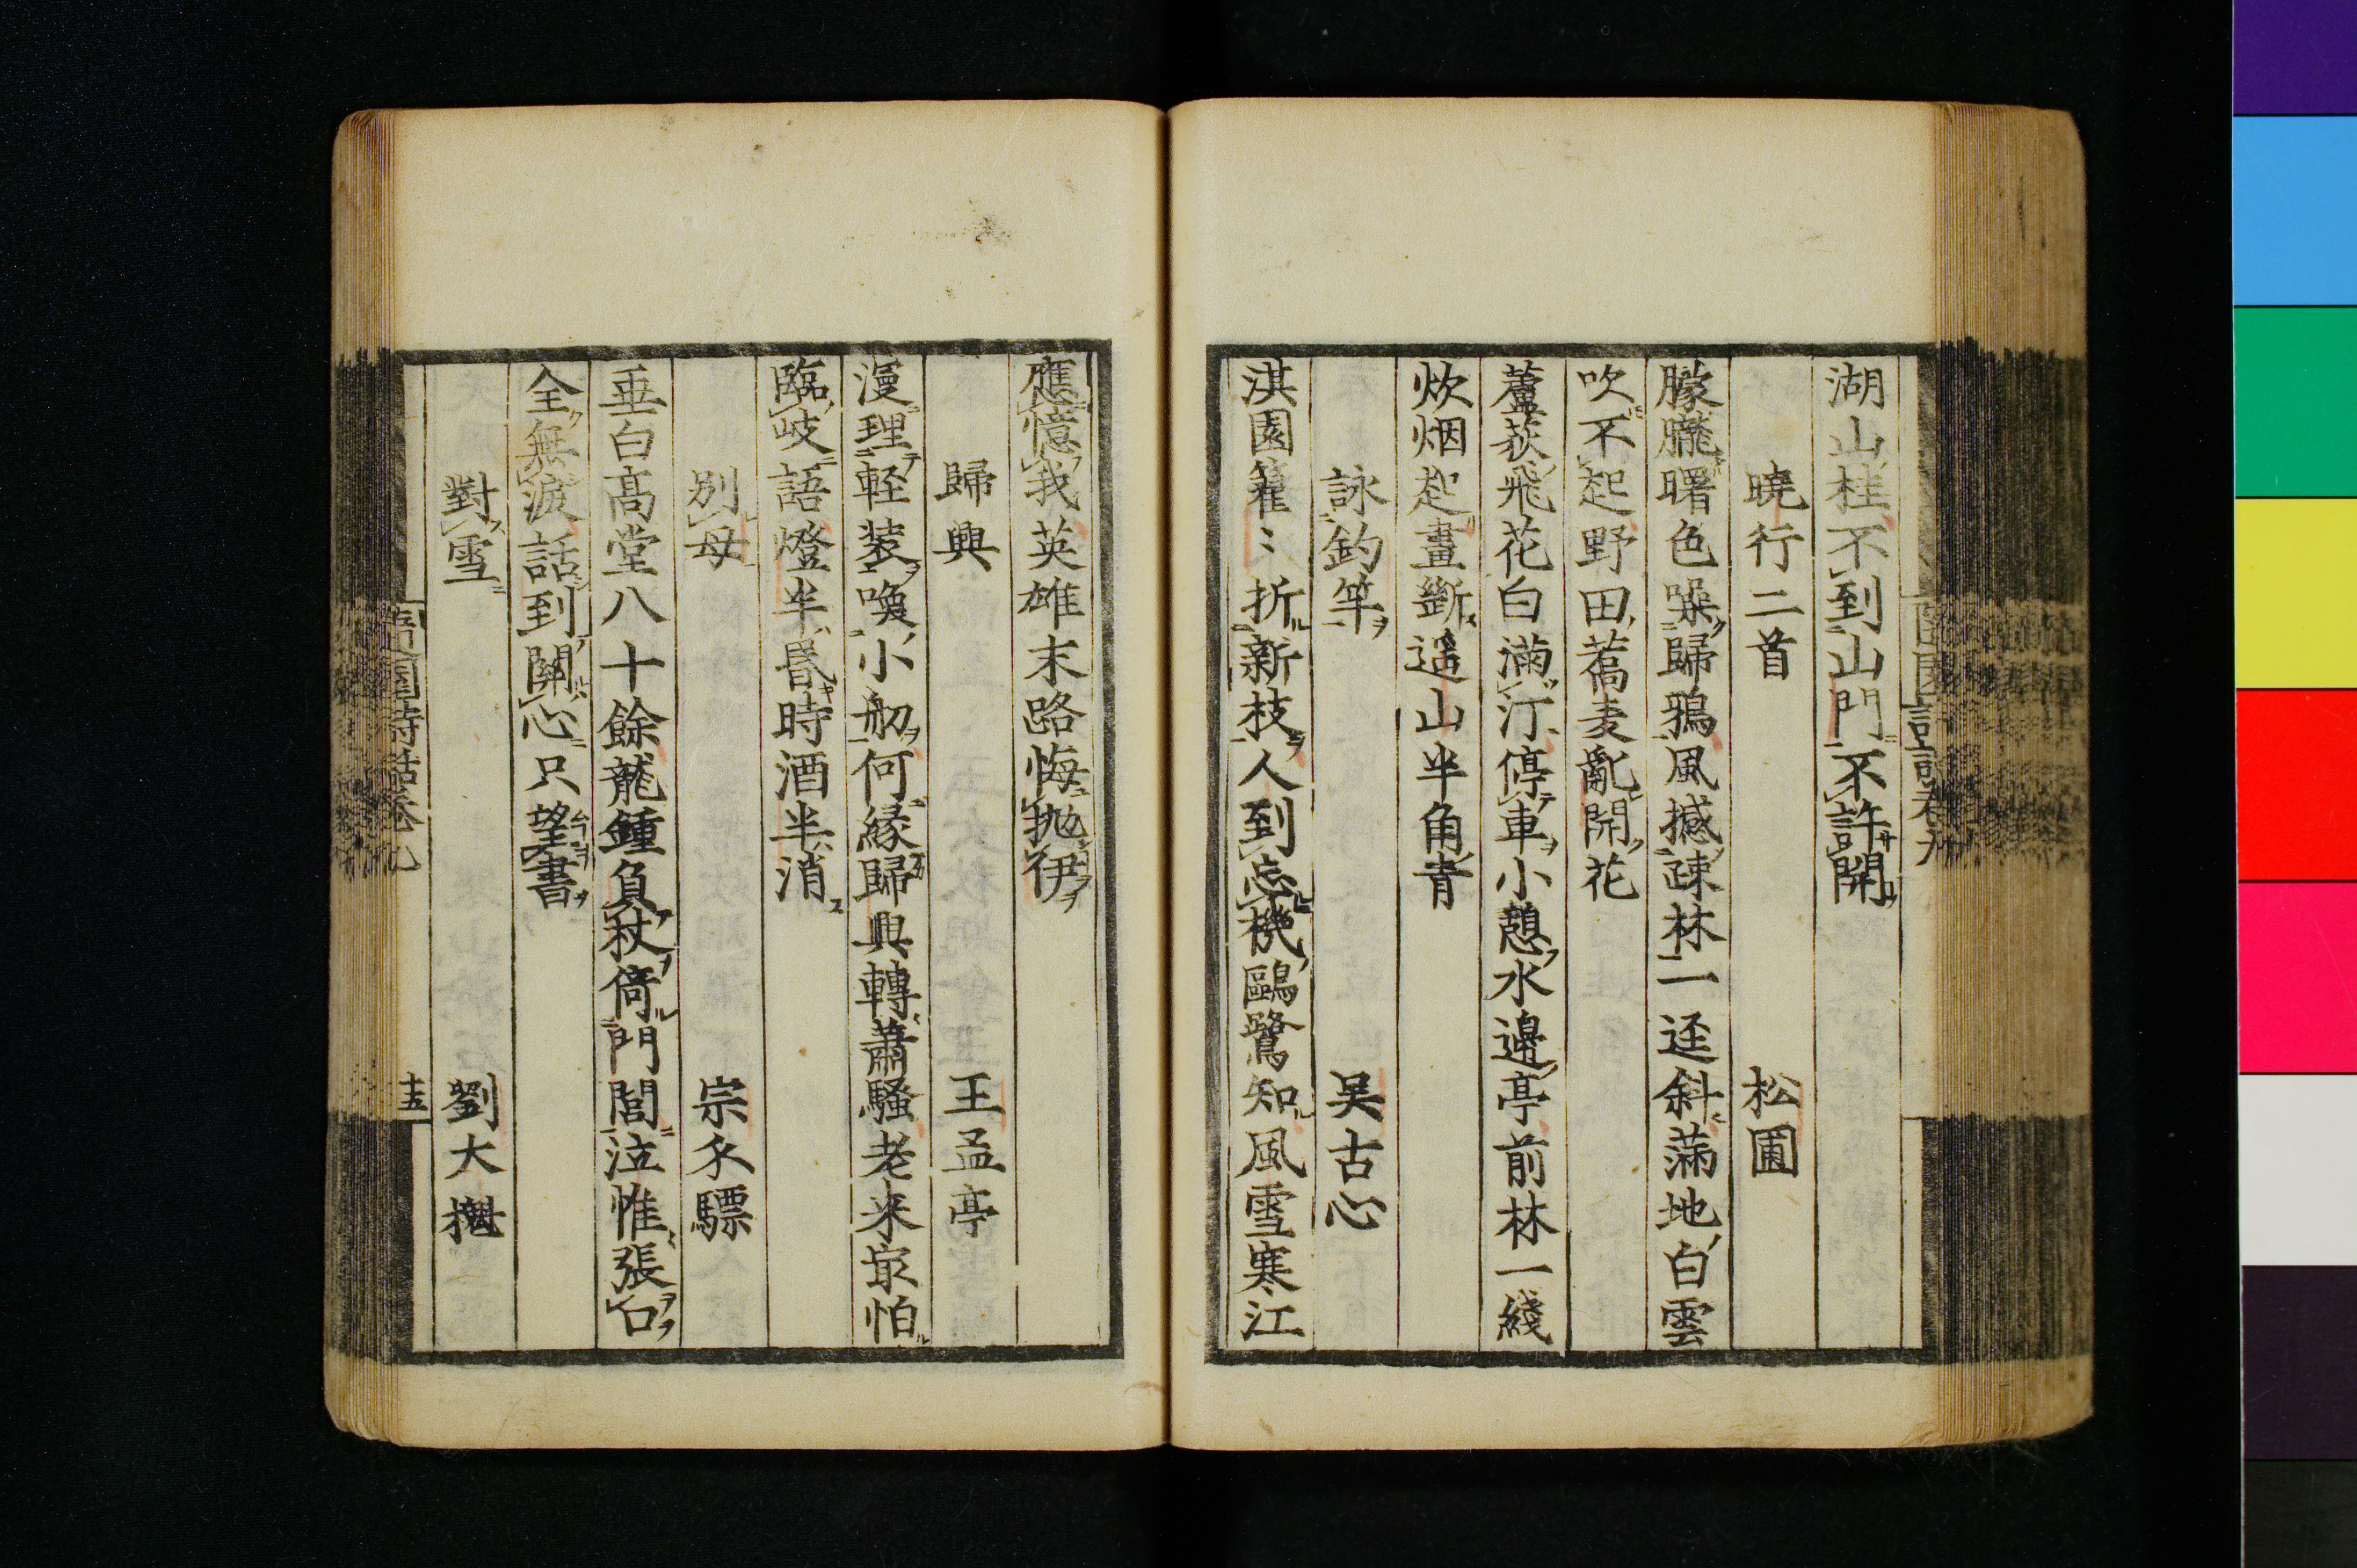 湖山桂不到山門不許開
曉行二首　松圃
朦朧曙色噪歸鴉風撼疎林一逕斜滿地白雲
吹不起野田蕎麦亂開花
蘆荻飛花白滿汀停車小憩水邊亭前林一綫
炊烟起畫斷遥山半角青
詠釣竿　吴古心
淇園籊〻折新枝人到忘機鷗鷺知風雪寒江
應憶我英雄末路悔抛伊
歸興　王孟亭
漫理軽装喚小舠何縁歸興轉蕭騷老来㝡怕
臨岐語燈半昏時酒半消
別母　宗介驃
垂白髙堂八十餘龍鍾負杖倚門閭泣惟張口
全無淚話到關心只望書
對雪　劉大櫆
園詩話卷九
十五